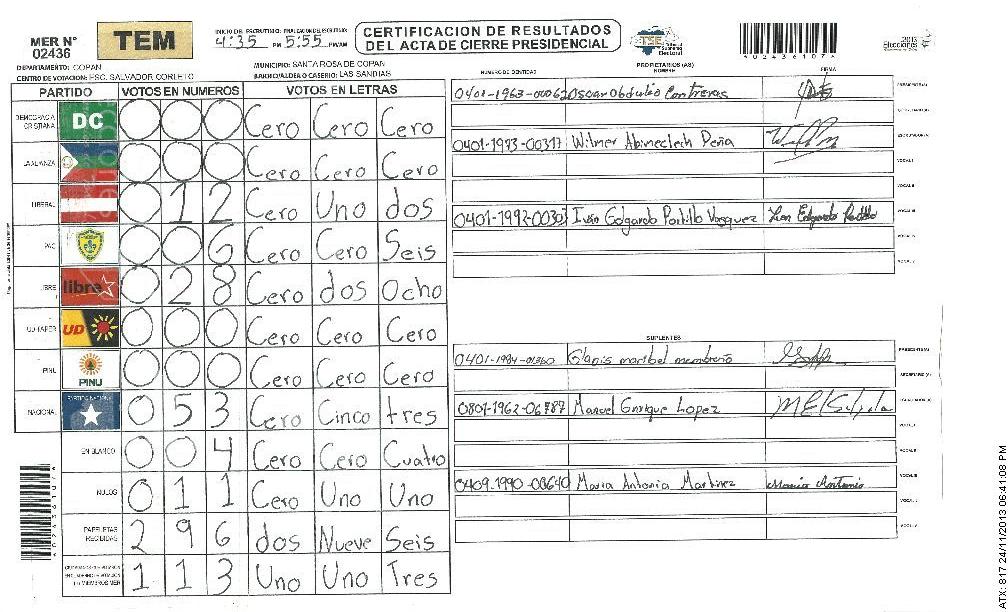 MER N° 02436
TEM
INICIO DEL ESCRUTINIO: FINALIZACION DEL ESCRUTINIO:
4:35 PM 5:55 PM/AM
CERTIFICACION DE RESULTADOS
DEL ACTA DE CIERRE PRESIDENCIAL
TSE Tribunal Supremo Electoral
4024361074
2013
Elecciones
DEPARTAMENTO: COPAN
MUNICIPIO: SANTA ROSA DE COPAN
CENTRO DE VOTACION: ESC. SALVADOR CORLETO
BARRIO/ALDEA O CASERIO: LAS SANDIAS
PARTIDO VOTOS EN NUMEROS VOTOS EN LETRAS
DEMOCRACIA CRISTIANA DC 0 0 0 Cero Cero Cero
LA ALIANZA 0 0 0 Cero Cero Cero
LIBERAL 0 1 2 Cero Uno dos
PAC 0 0 6 Cero Cero Seis
LIBRE libre 0 2 8 Cero dos Ocho
UD-FAPER UD 0 0 0 Cero Cero Cero
PINU PINU 0 0 0 Cero Cero Cero
NACIONAL PARTIDO NACIONAL 0 5 3 Cero Cinco tres
EN BLANCO 0 0 4 Cero Cero Cuatro
NULOS 0 1 1 Cero Uno Uno
PAPELETAS RECIBIDAS 2 9 6 dos Nueve Seis
1 1 3 Uno Uno Tres
PROPIETARIOS (AS)
NUMERO DE IDENTIDAD NOMBRE FIRMA
0401-1963-00062 Oscar Obdulio Contreras PRESIDENTE(A)
SECRETARIO(A)
0401-1973-00317 Wilmer Abimeclech Peña ESCRUTADOR(A)
VOCAL I
VOCAL II
0401-1992-00303 Iván Edgardo Portillo Vasquez Ivan Edgardo Portillo VOCAL III
VOCAL IV
VOCAL V
SUPLENTES
0401-1984-01360 Glanis maribel membreño PRESIDENTE(A)
SECRETARIO (A)
0801-1962-06787 Manuel Enrique Lopez ESCRUTADOR(A)
VOCAL I
VOCAL II
0409-1990-00640 Maria Antonia Martinez Maria Antonia VOCAL III
VOCAL IV
VOCAL V
4024361074
ATX: 817 24/11/2013 06:41:08 PM